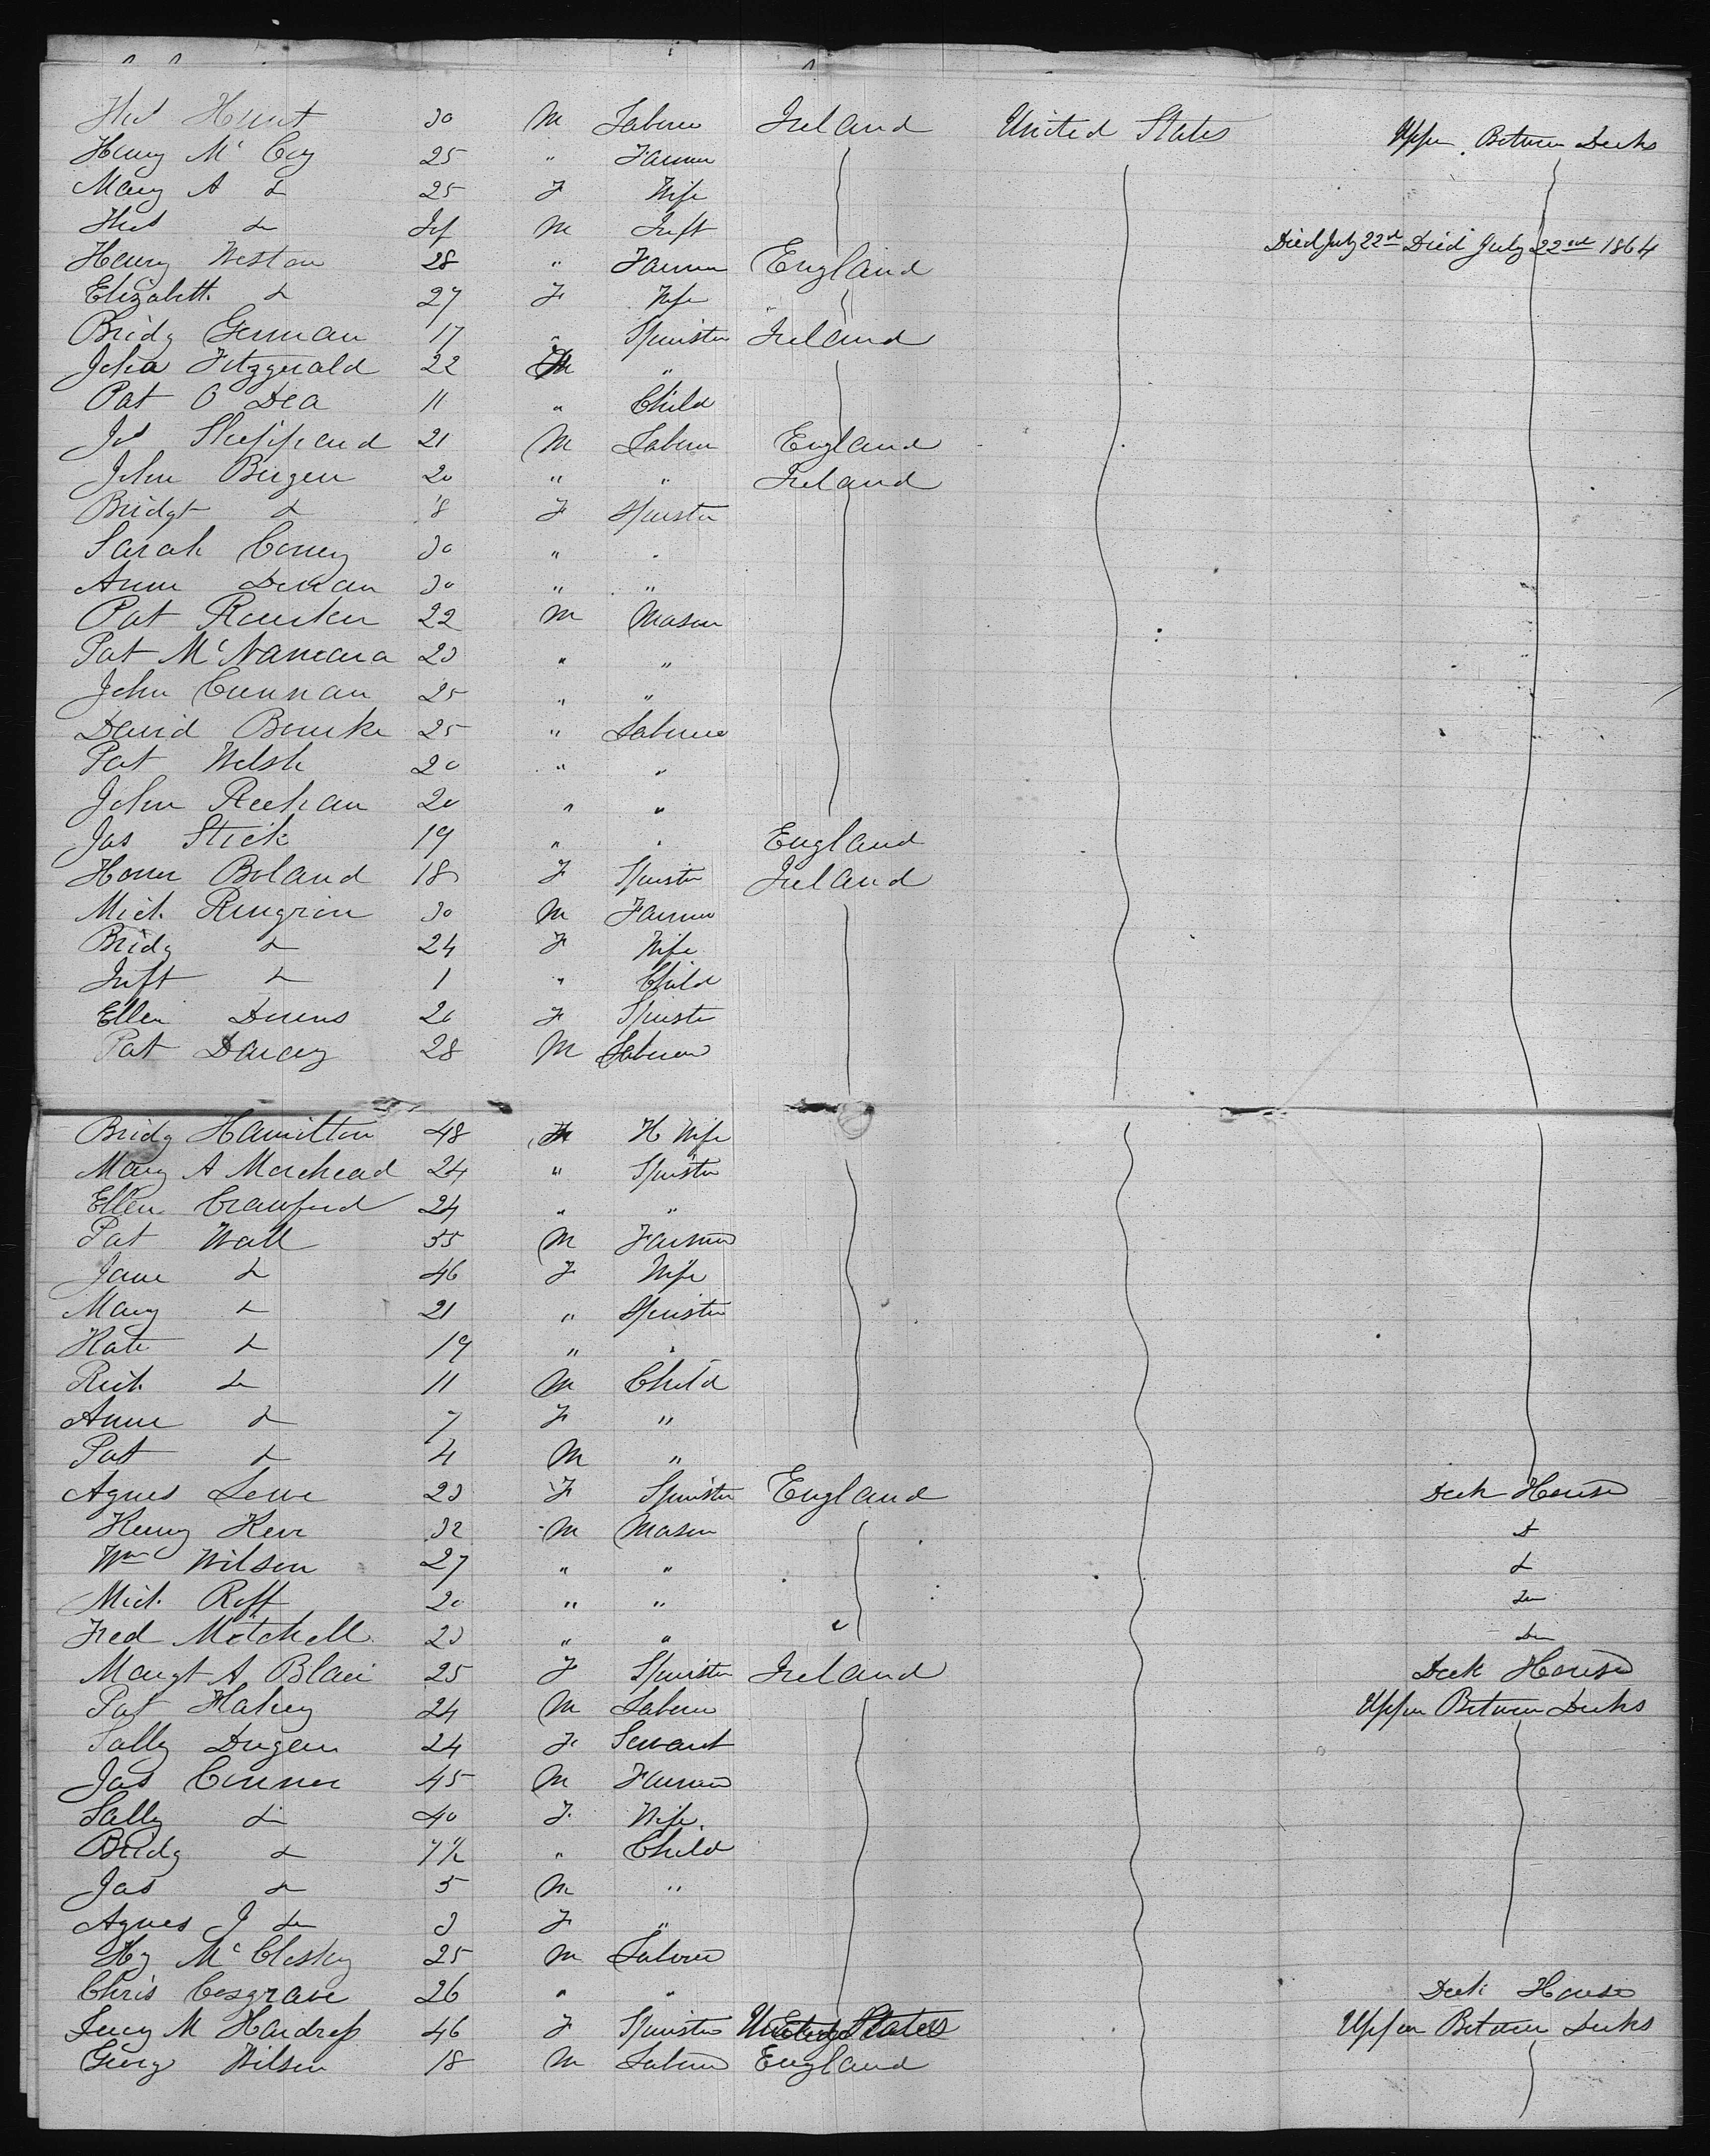 Thos Hunt 30 M Laborer Ireland United States Upper Between Decks
Henry Mc Coy 25 " Farmer
Mary A do 25 F Wife
Thos do Inf M Inft Died July 22nd Died July 22nd 1864
Henry Weston 28 " Farmer England
Elizabeth do 27 F Wife "
Bridg German 17 " Spinster Ireland
Joha Fitzgerald 22 "
Pat O Dea 11 " Child
Js Sheppard 21 M Laborer England
John Bergen 20 " " Ireland
Bridgt do 18 F Spinster
Sarah Coney 30 " "
Anne 30 " "
Pat 22 M Mason
Pat McNamara 23 " "
John 25 " "
David Bourke 25 " Laborer
Pat Welsh 20 " "
John Reehan 20 " "
Jas Stick 19 " " England
Honor Boland 18 F Spinster Ireland
Mich Ringrion 30 M Farmer
Bridg do 24 F Wife
Inft do 1 " Child
Ellen Downs 20 F Spinster
Pat Darcey 28 M Laborer
Bridg Hamilton 48 H Wife
Mary A Morehead 24 " Spinster
Ellen Crawford 24 " "
Pat Wall 55 M Farmer
Jane do 46 F Wife
Mary do 21 " Spinster
Kate do 19 " "
Rich do 11 M Child
Anne do 7 F "
Pat do 4 M "
Agnes Lowe 23 F Spinster England Deck House
Henry Kerr 32 M Mason do
Wm Wilson 27 " " do
Mich Roff 20 " " do
Fred Mitchell 23 " " " do
Margt A Blair 25 F Spinster Ireland Deck House
Pat Hahey 24 M Laborer Upper Between Decks
Sally Dugan 24 F Servant
Jas Connor 45 M Farmer
Sally do 40 F Wife
Bridg do 7½ " Child
Jas do 5 M "
Agnes J do 3 F "
Hy Mc Clesky 25 M Laborer
Chris Cosgrave 26 " " Deck House
Lucy M Hardrop 46 F Spinster United States Upper Between Decks
Georg Wilson 18 M Laborer England